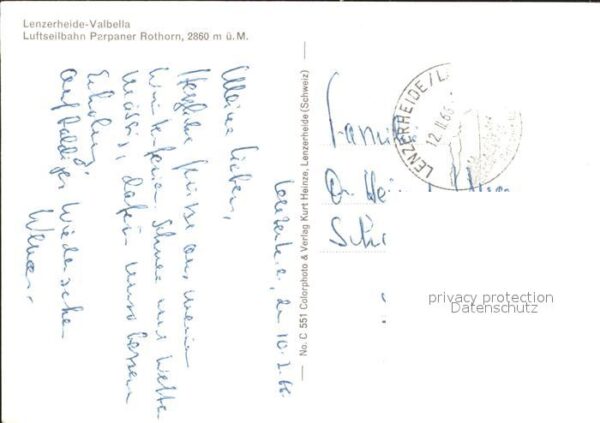 Lenzerheide-Valbella
Luftseilbahn Parpaner Rothorn, 2860 m ü. M.
Lenzerh.e., den 10.2.66.
Meine Lieben,
Herzliche Grüsse aus meinen
Winterferien. Schnee und Wetter
mässig, dafür umso bessere
Erholung.
Auf baldiges Wiedersehen
Werner.
No. C 551 Colorphoto & Verlag Kurt Heinze, Lenzerheide (Schweiz)
LENZERHEIDE/L
12.II.66
Famili
Dr. Hei
Schu
privacy protection
Datenschutz